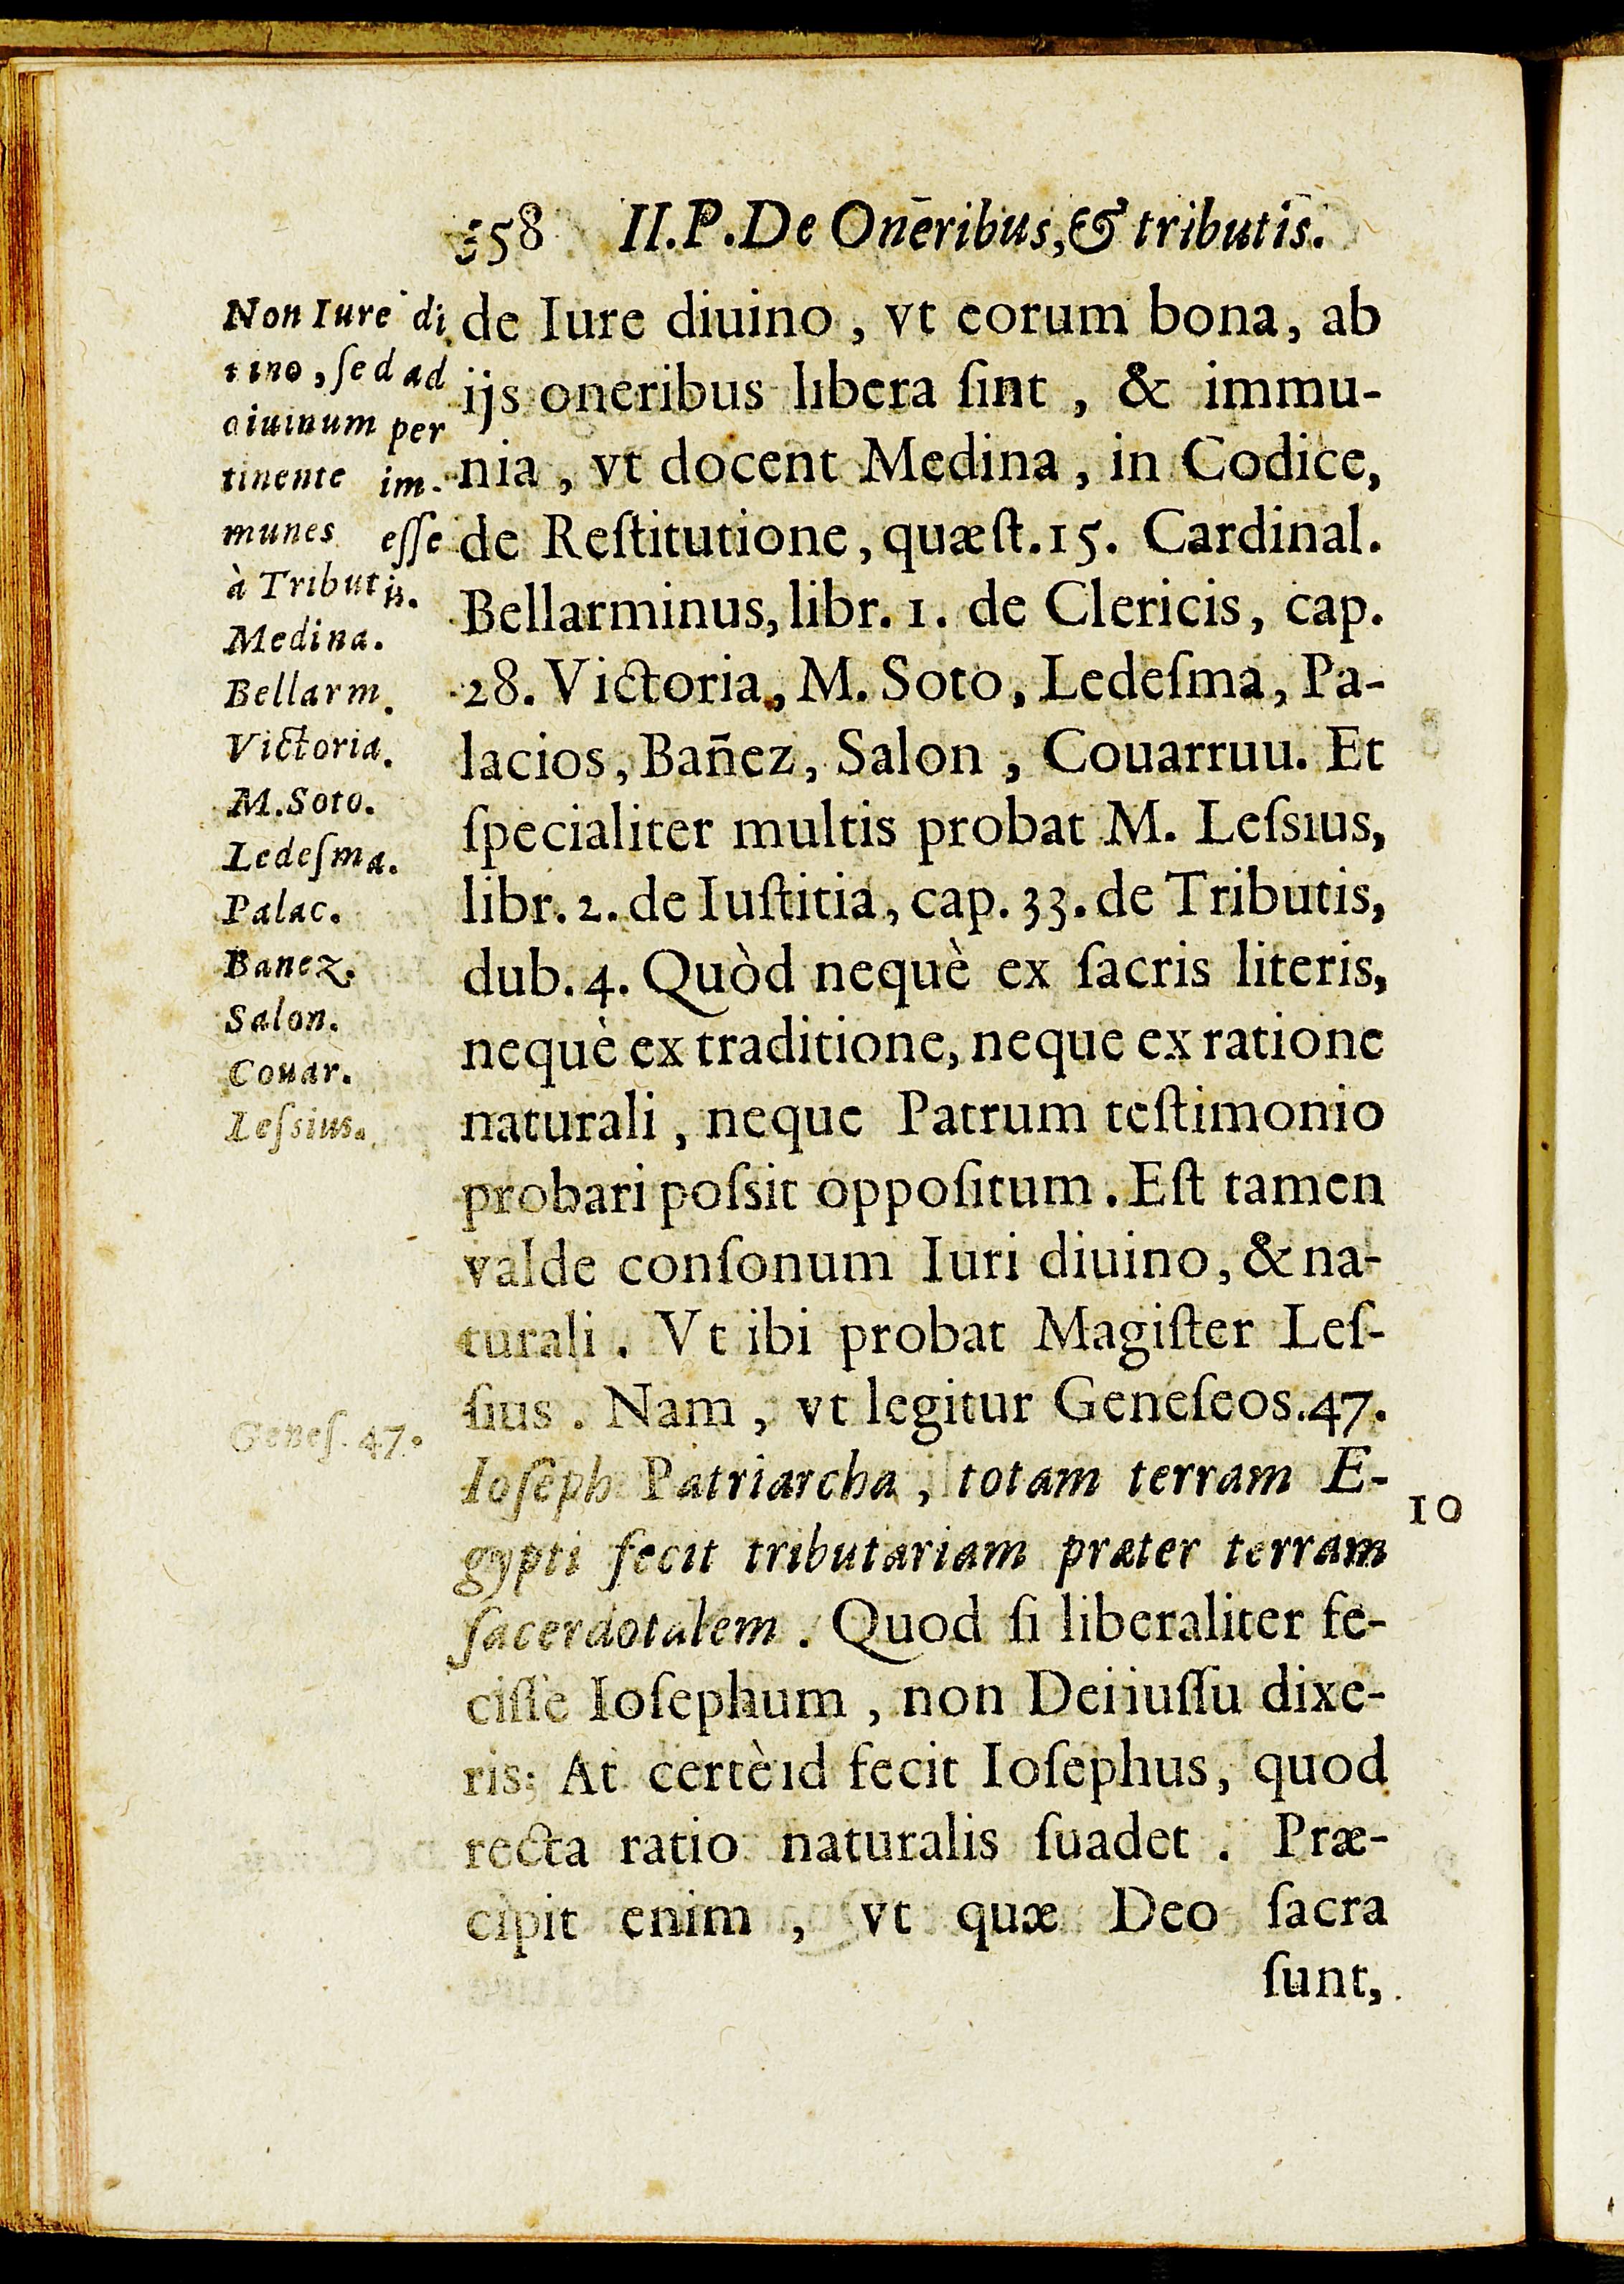 358 II.P.De Oneribus,& tributis.
Non Iure di
uino, ſed ad
diuinum per
tinente im-
munes eſſe
à Tributis.
Medina.
Bellarm.
Victoria.
M.Soto.
Ledeſma.
Palac.
Banez.
Salon.
Couar.
Leſsius.
Geneſ. 47.
de Iure diuino, vt eorum bona, ab
ijs oneribus libera ſint, & immu-
nia, vt docent Medina, in Codice,
de Reſtitutione, quæſt.15. Cardinal.
Bellarminus, libr. 1. de Clericis, cap.
28. Victoria, M. Soto, Ledeſma, Pa-
lacios, Bañez, Salon, Couarruu. Et
ſpecialiter multis probat M. Leſsius,
libr. 2. de Iuſtitia, cap. 33. de Tributis,
dub. 4. Quòd nequè ex ſacris literis,
nequè ex traditione, neque ex ratione
naturali, neque Patrum teſtimonio
probari poſsit oppoſitum. Eſt tamen
valde conſonum Iuri diuino, & na-
turali. Vt ibi probat Magiſter Leſ-
ſius. Nam, vt legitur Geneſeos.47.
Ioſeph Patriarcha, totam terram E-
gypti fecit tributariam præter terram
ſacerdotalem. Quod ſi liberaliter fe-
ciſſe Ioſephum, non Dei iuſſu dixe-
ris; At certè id fecit Ioſephus, quod
recta ratio naturalis ſuadet. Præ-
cipit enim, vt quæ Deo ſacra
ſunt,
10